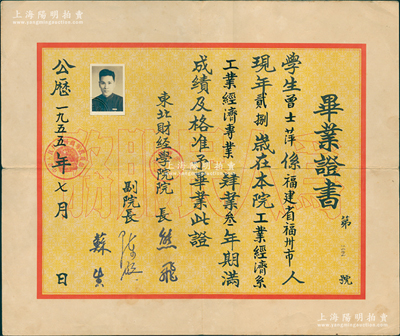 上海陽明拍賣
畢業證書
第 號
學生曾士萍係福建省福州市人
現年貳捌歲在本院工業經濟系
工業經濟專業肄業叁年期滿
成績及格准予畢業此證
東北財經學院院長 熊飛
副院長
公歷一九五五年七月 日